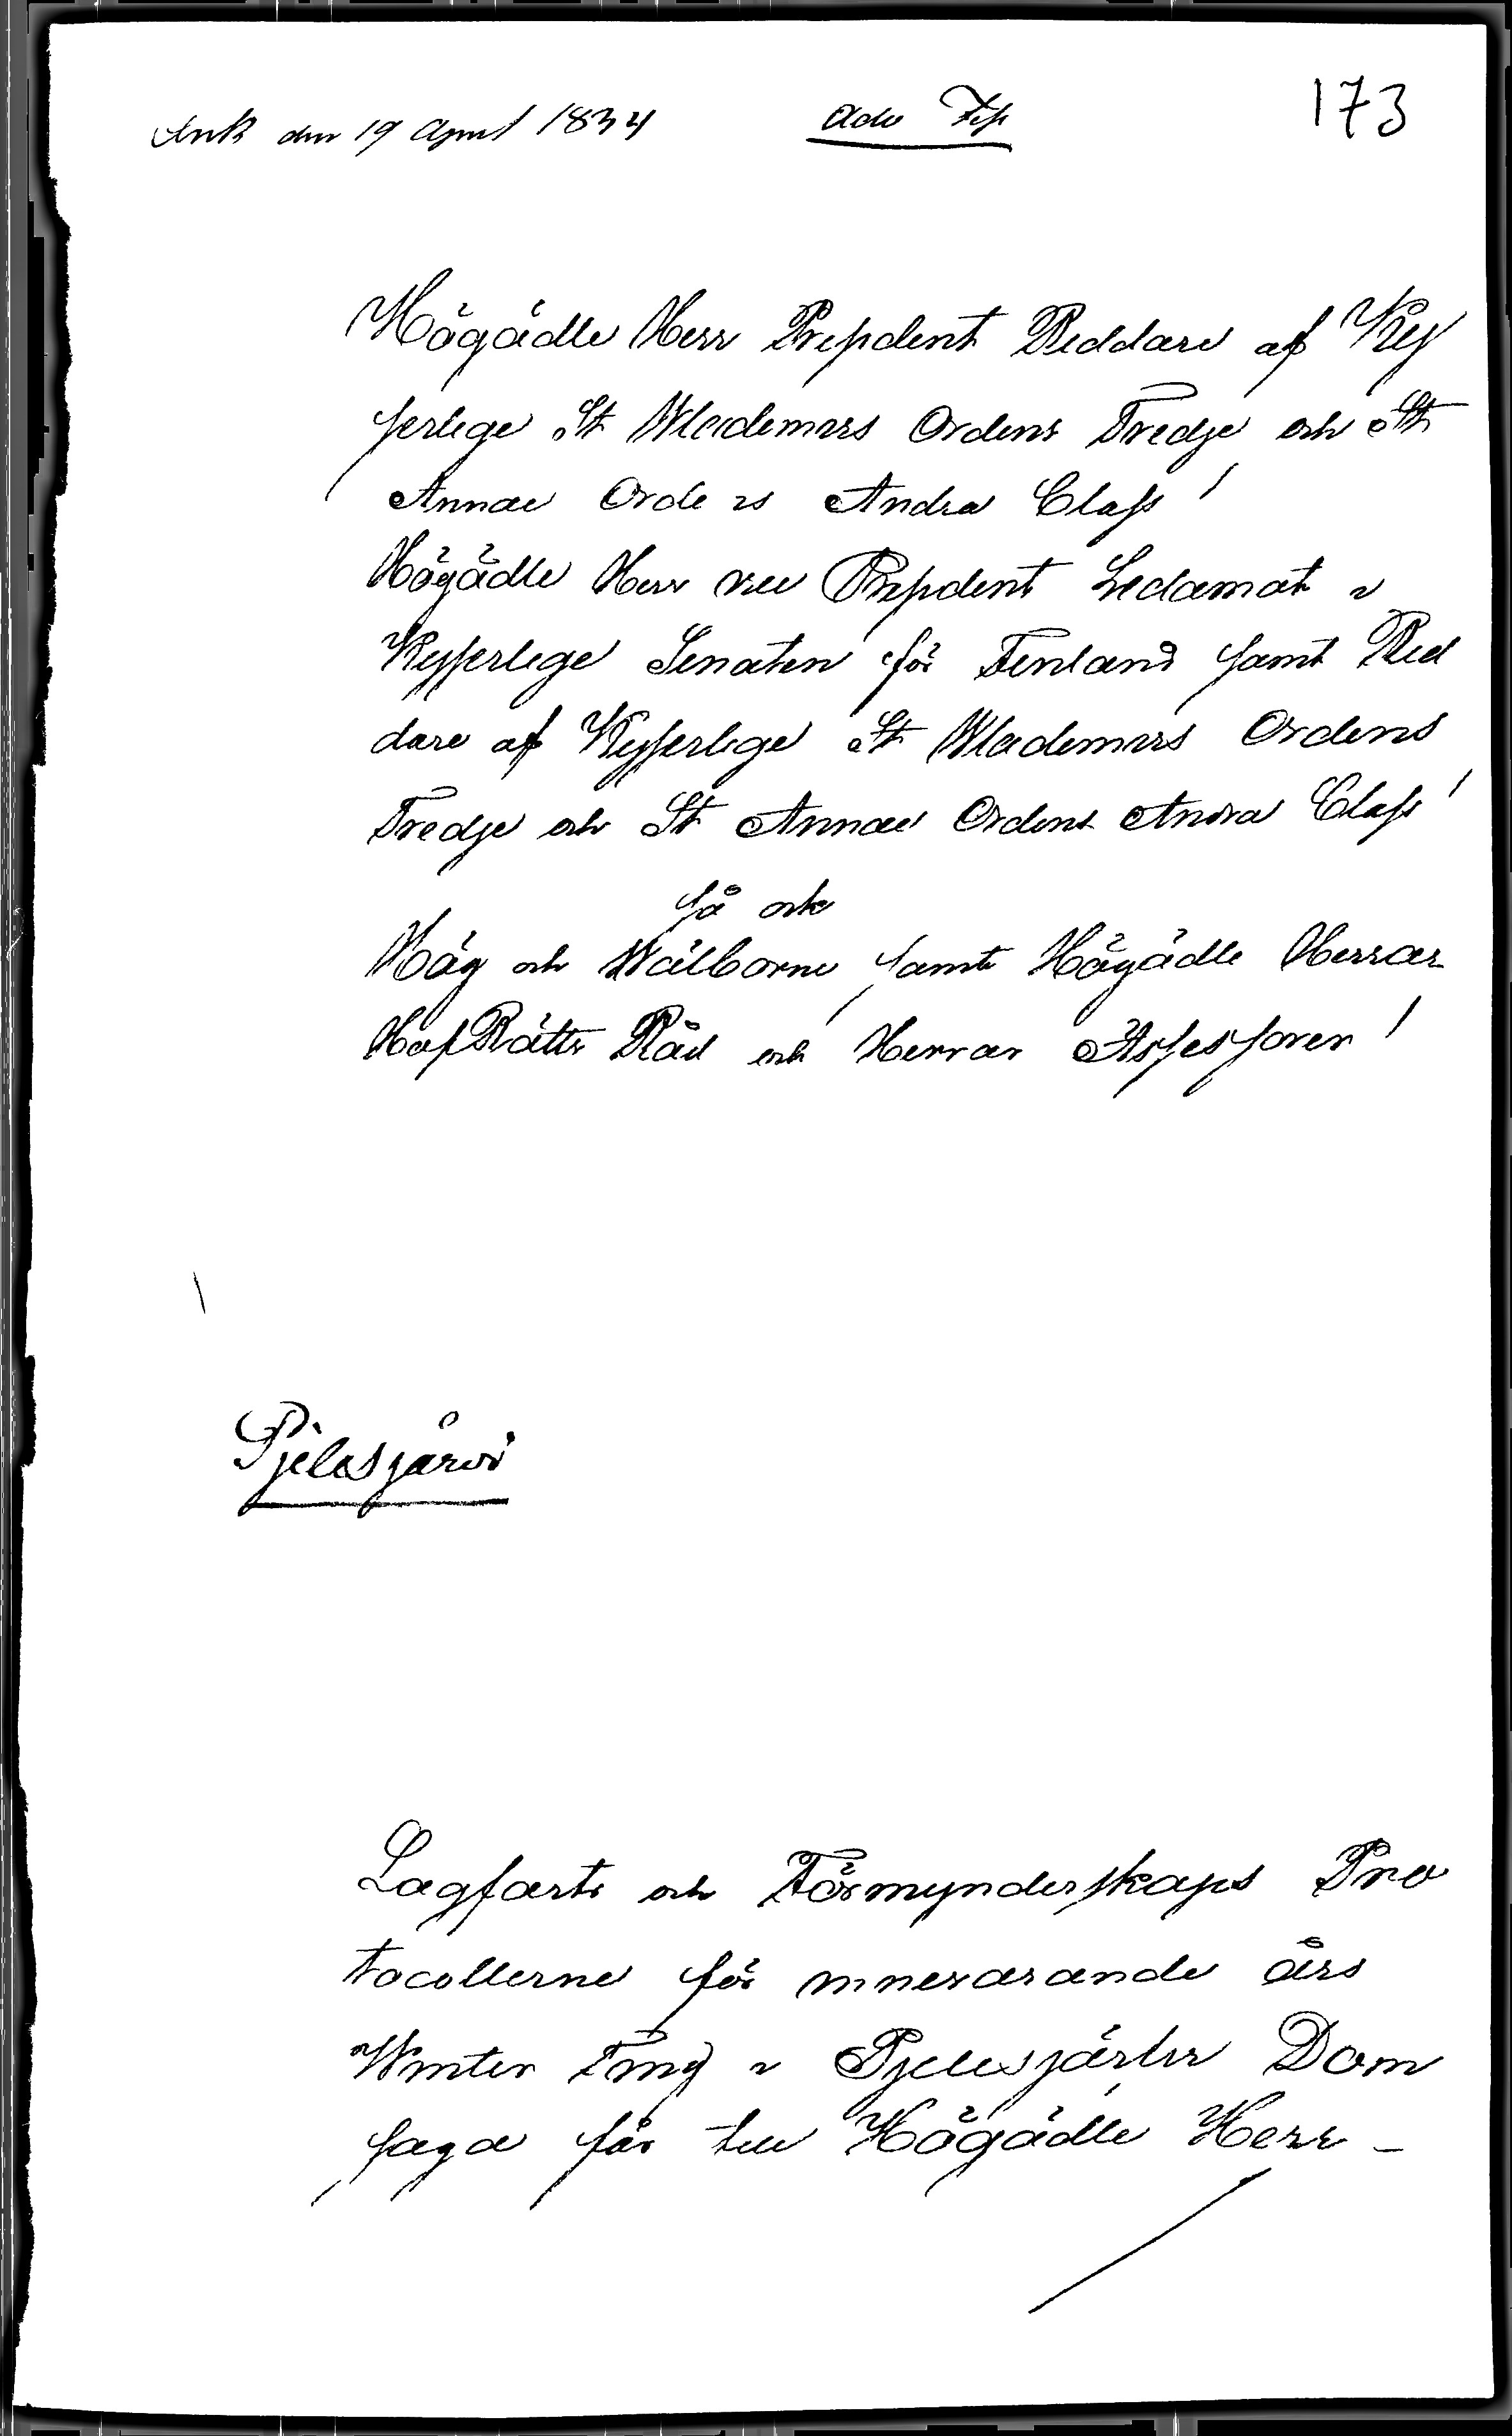 Ank den 19 April 1834
Adv Fis
173
Högädle Herr President Riddare af Kej
serlige St Wladimirs Ordens Tredje och St
Annae Ordens Andra Class!
Högädle Herr vice President Ledamot i
Kejserlige Senaten för Finland samt Rid
dare af Kejserlige St Wladimirs Ordens
Tredje och St Annae Ordens Andra Class!
så ock
Hög och Wälborne samt Högädle Herrar
HofRätts Råd och Herrar Assessorer!
Pjelisjärvi
Lagfarts och Förmynderskaps Pro
tocollerne för innevarande års
Winter Ting i Pjelisjärvi Dom
saga får till Högädle Herr